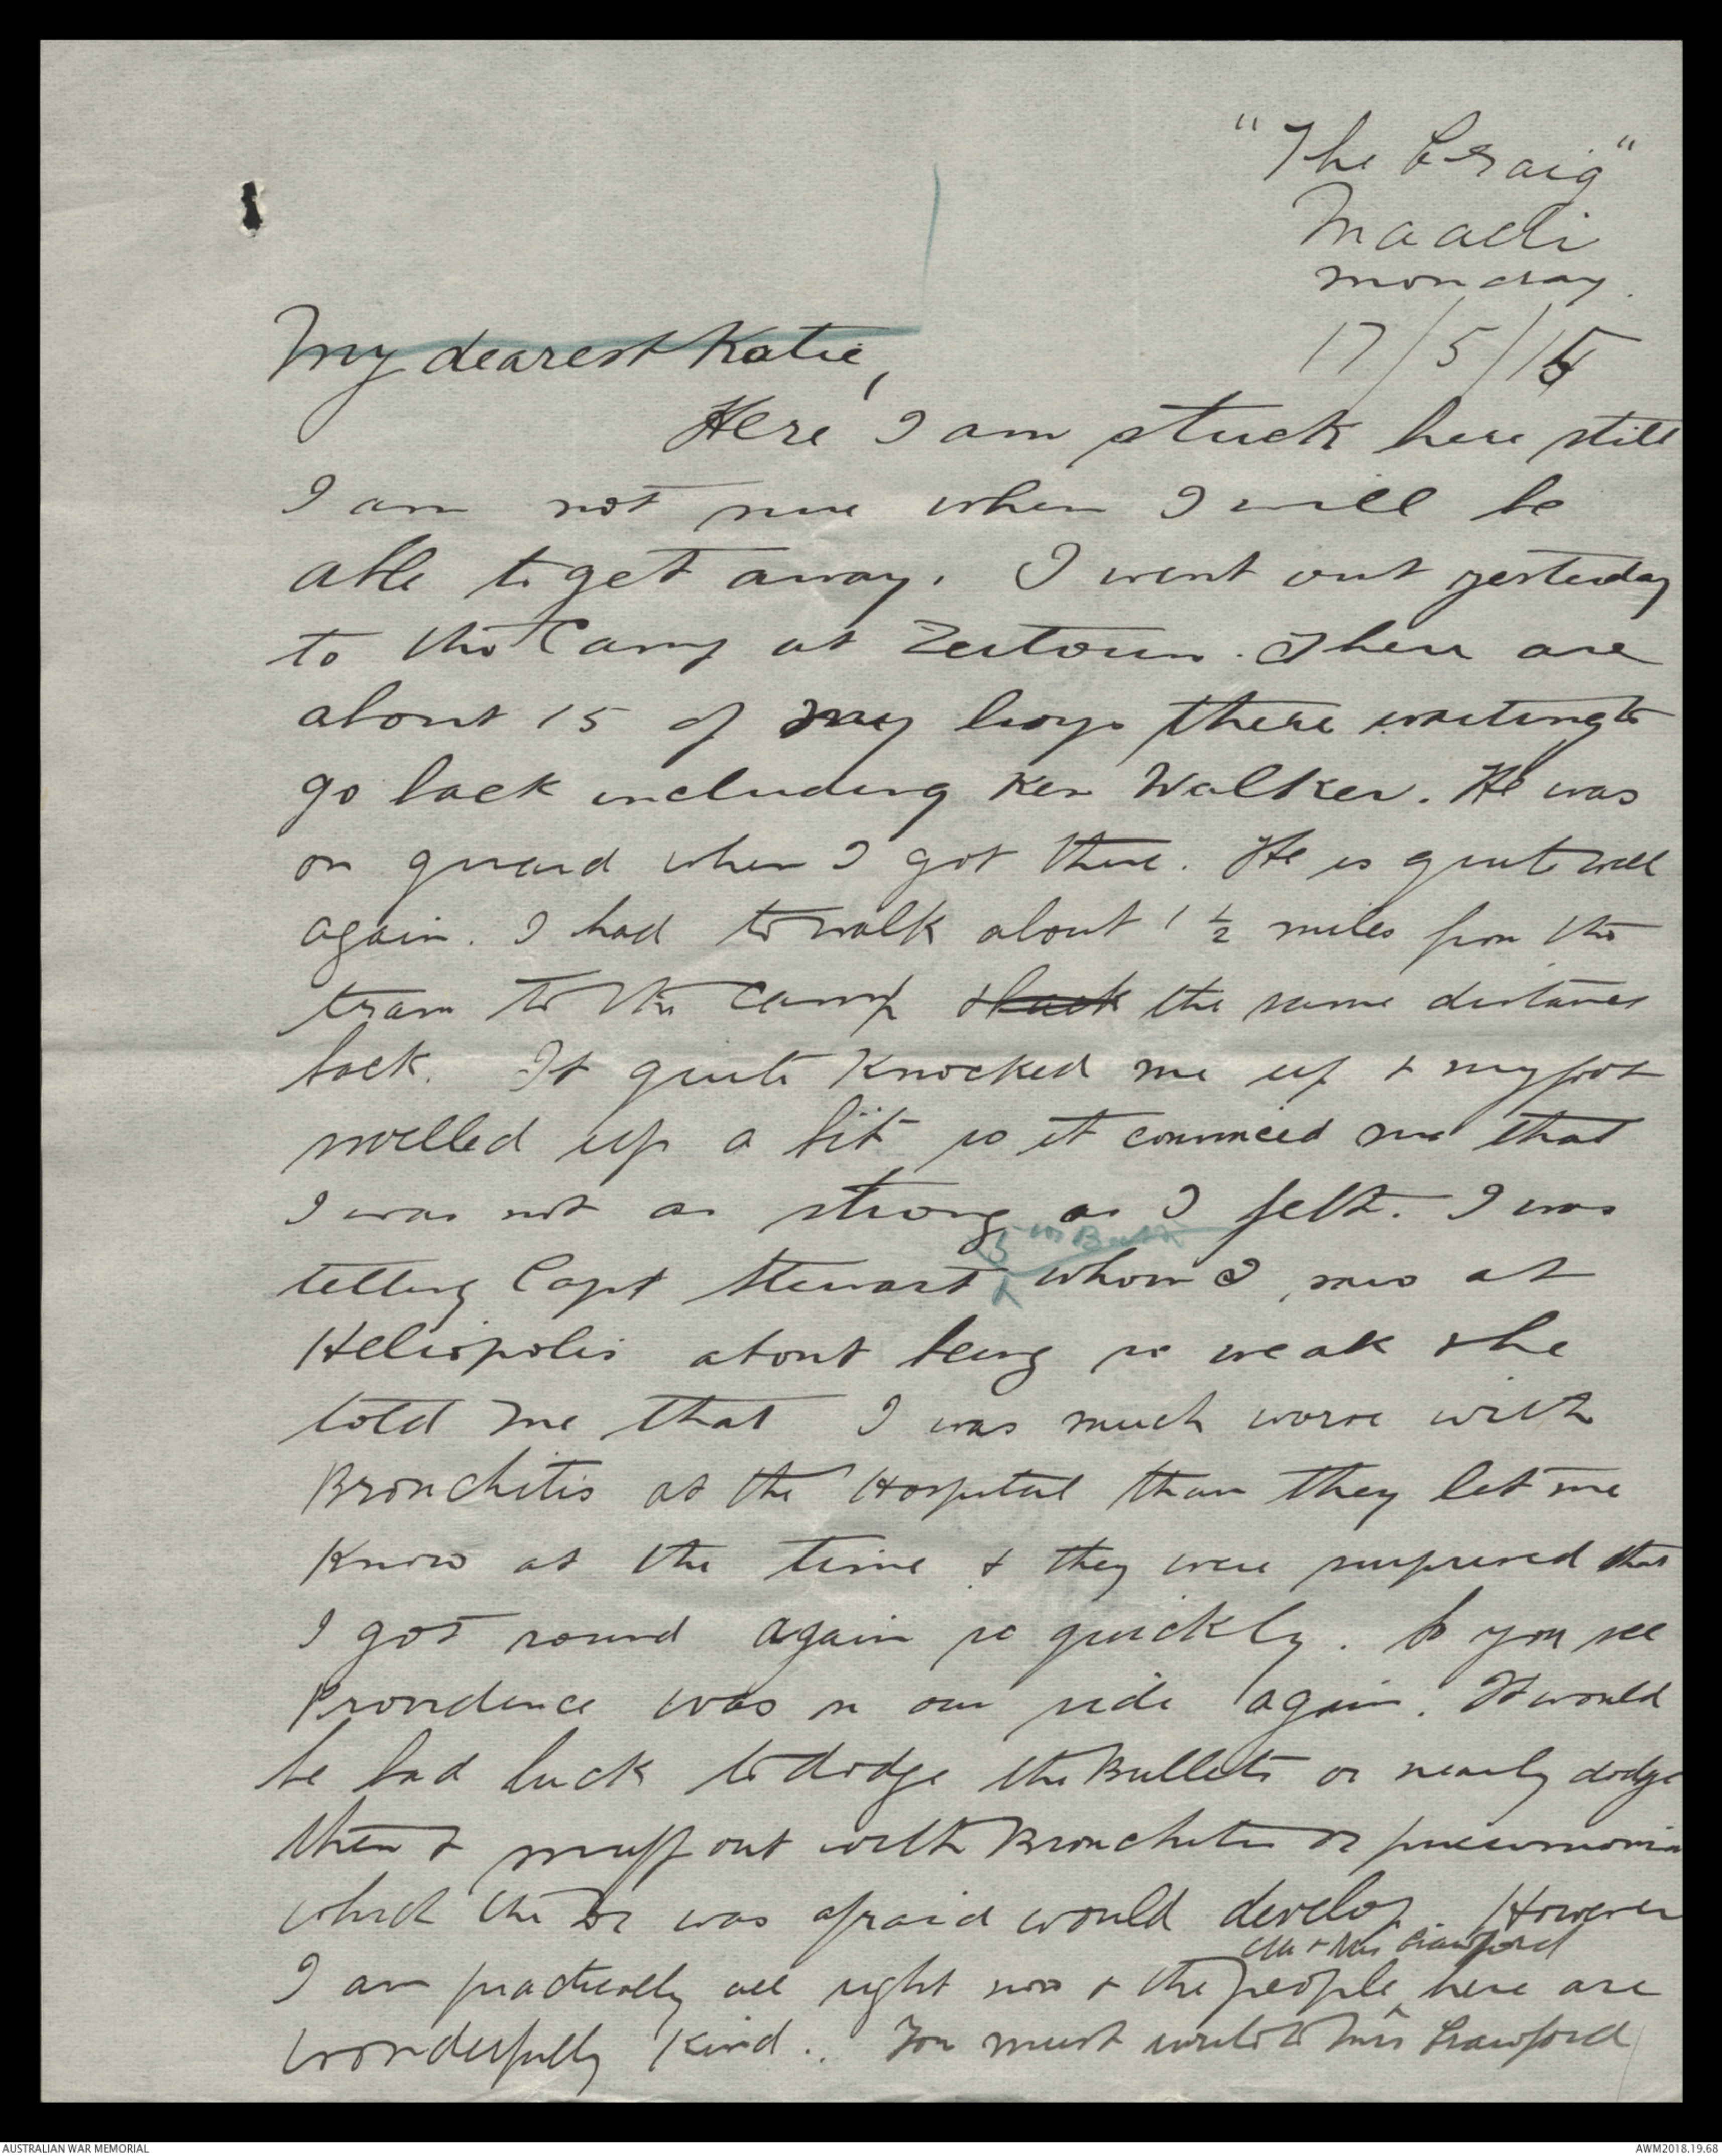 "The Craig"
Maadi
Monday.
17/5/15
My dearest Katie,
Here I am stuck here still
I am not sure when I will be
able to get away. I went out yesterday
to the Camp at Zeitoun. There are
about 15 of my boys there waiting to
go back including Ken Walker. He was
on guard when I got there. He is quite well
again. I had to walk about 1 1/2 miles from the
tram to the Camp & back the same distance
back. It quite knocked me up & my foot
swelled up a bit so it convinced me that
I was not as strong as I felt. I was
15th Battn
telling Capt Stewart whom I saw at
Heliopolis about being so weak & he
told me that I was much worse with
Bronchitis at the Hospital than they let me
know at the time & they were surprised that
I got round again so quickly. So you see
Providence was on our side again. It would
be bad luck to dodge the Bullets or nearly dodge
them & snuff out with Bronchitis or pneumonia
which the Dr was afraid would develop. However
Mr & Mrs Crawford
I am practically all right now & the people here are
wonderfully kind. You must write to Mrs Crawford
AUSTRALIAN WAR MEMORIAL
AWM2018.19.68